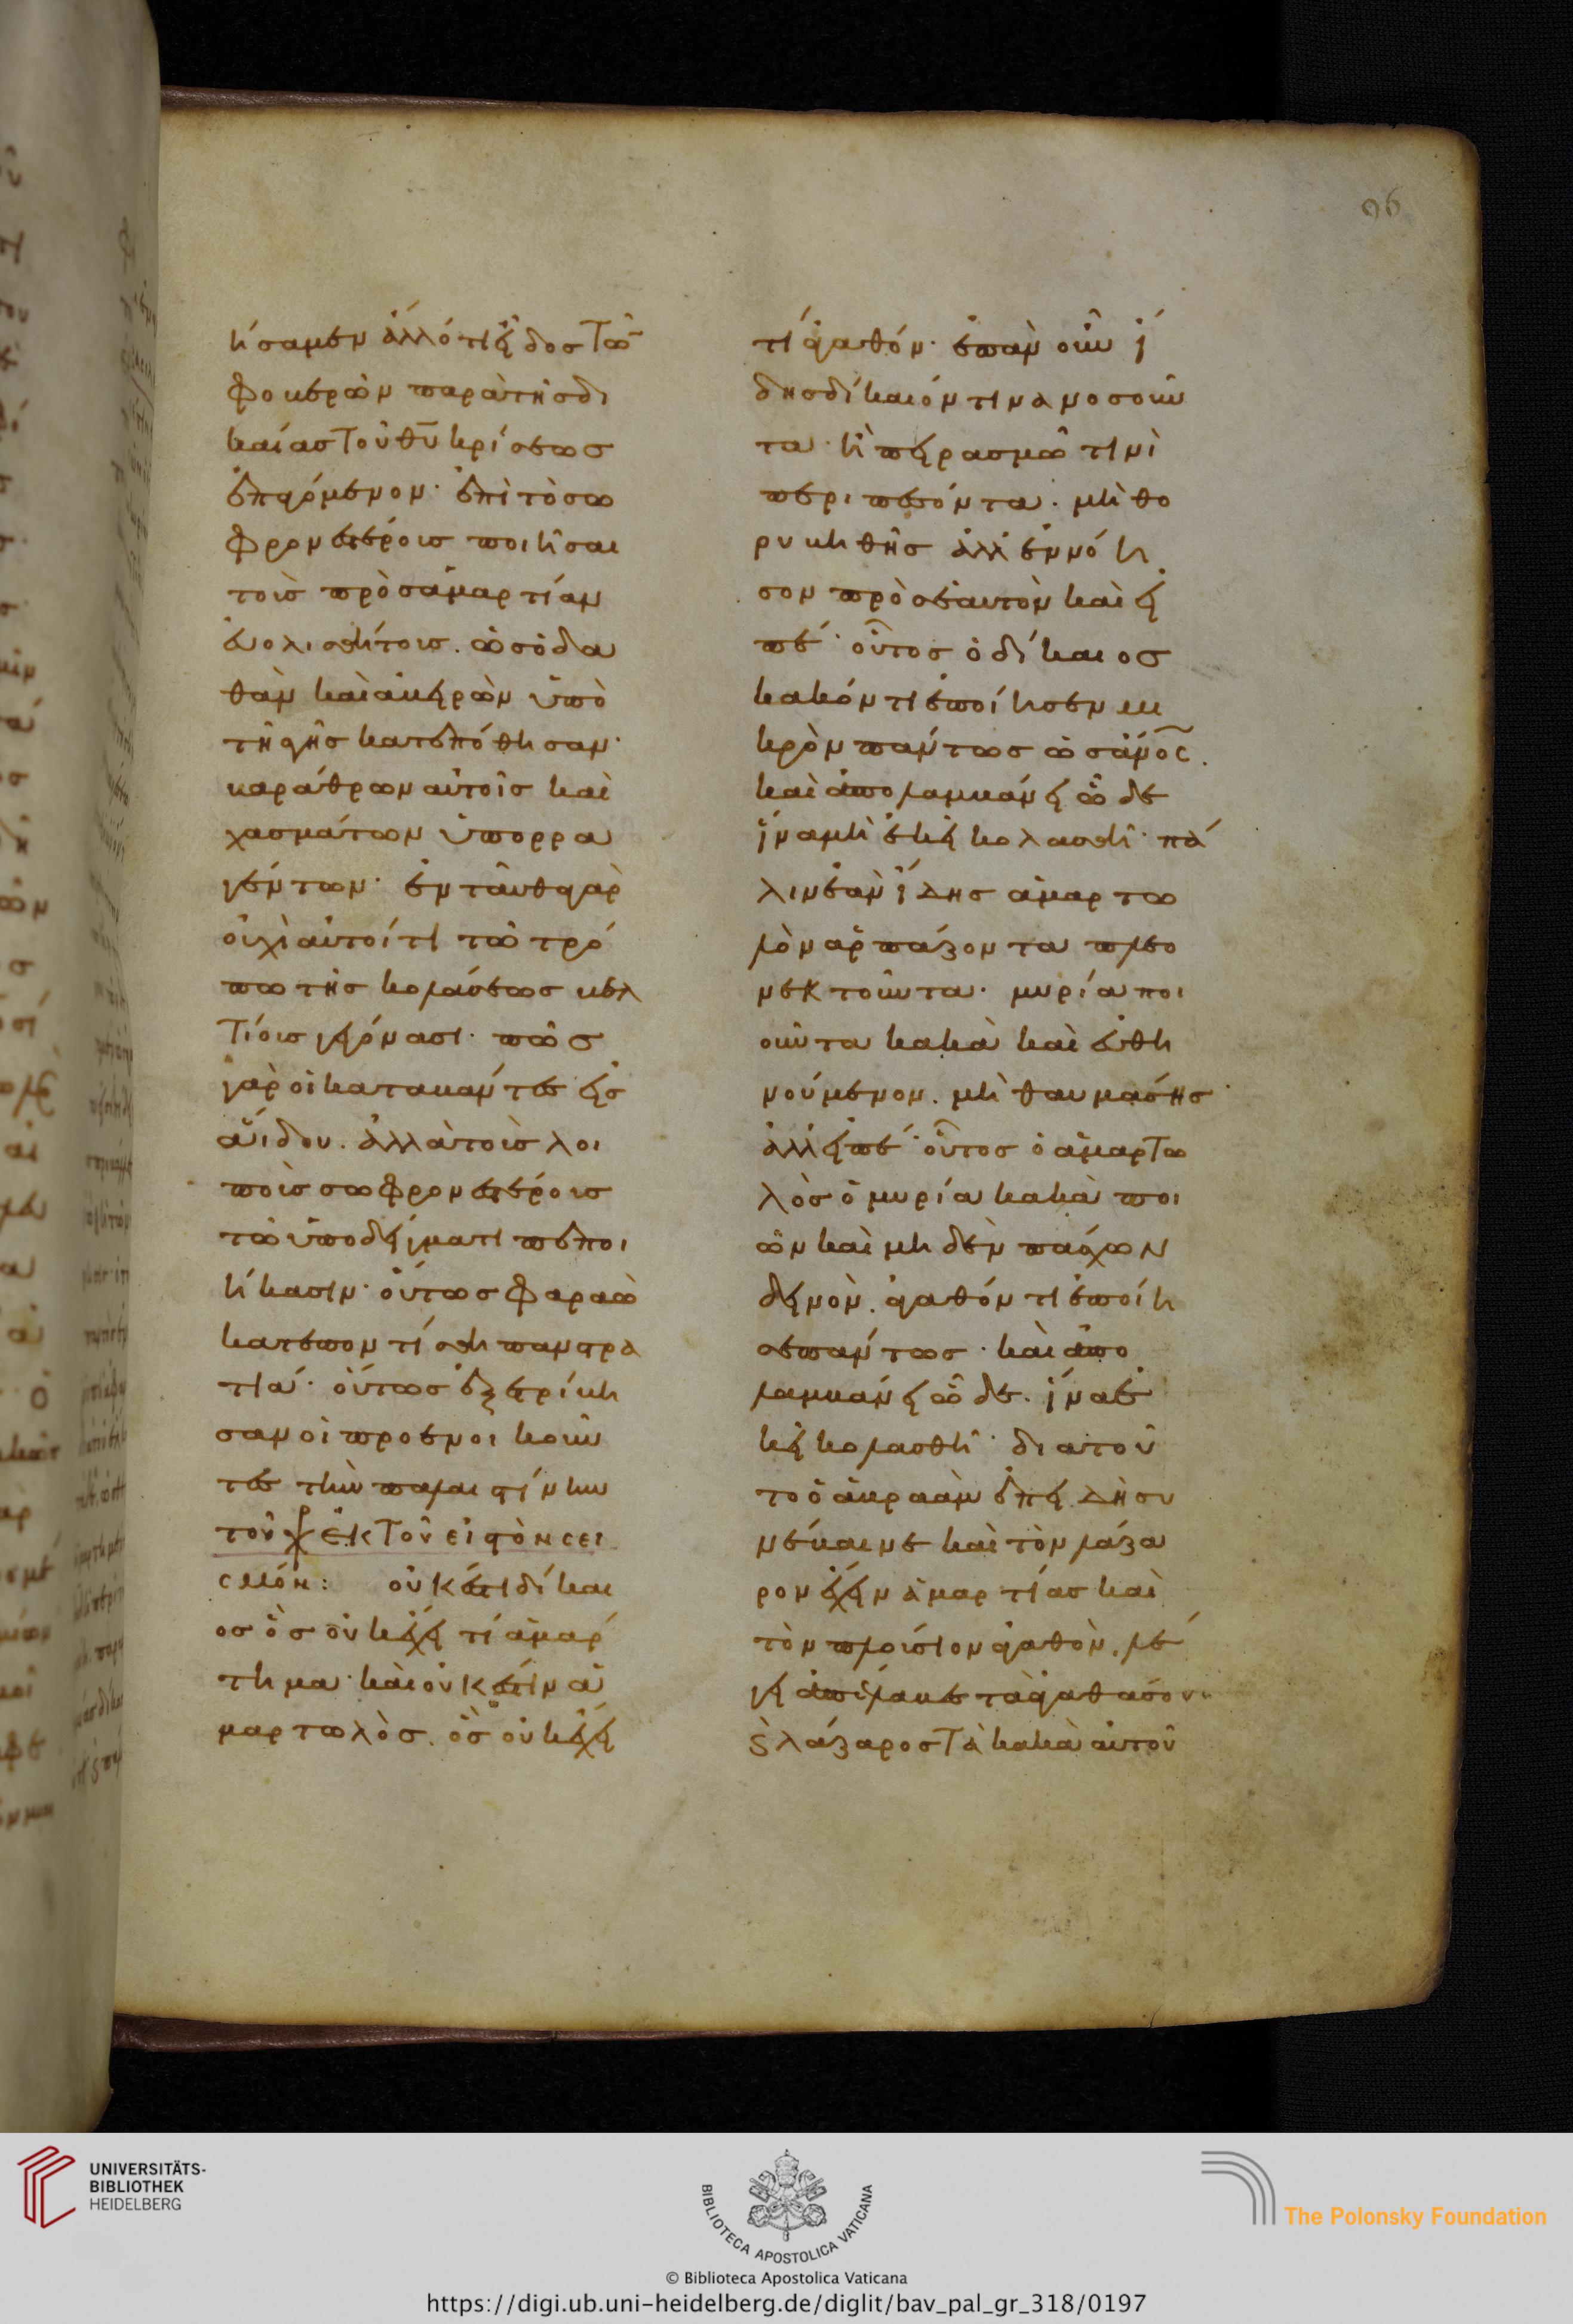 ήσαμεν ἀλλό τι εἶδος τῶν
φοβερῶν παρὰ τῆς δι
καίας τοῦ θυ κρίσεως
ἐπαγόμενον· ἐπὶ τὸ σω
φρονεστέρους ποιῆσαι
τοὺς πρὸς ἁμαρτίαν
εὐολισθήτους. ὡς ὁ δα
θὰν καὶ ἀβειρὼν ὑπὸ
τῆς γῆς κατεπόθησαν·
βαράθρων αὐτοῖς καὶ
χασμάτων ὑπορρα
γέντων· ἐνταῦθα γὰρ
οὐχὶ αὐτοί τι τῶ τρό
πω τῆς κολάσεως βελ
τίους γεγόνασι· πῶς
γὰρ οἱ καταβάντες εἰς
ἅιδου. ἀλλὰ τοὺς λοι
ποὺς σωφρονεστέρους
τῶ ὑποδείγματι πεποι
ήκασιν· οὕτως φαραὼ
κατεποντίσθη πανστρα
τιά· οὕτως ἐξετρίβη
σαν οἱ προενοικοῦν
τες τὴν παλαιστίνην
τοῦ χρ ἐκ τοῦ εἰς τὸν σει
σμόν: οὐκ ἔστι δίκαι
ος ὃς οὐκ ἔχει τί ἁμάρ
τημα· καὶ οὐκ ἔστιν ἁ
μαρτωλὸς. ὃς οὐκ ἔχει
96
τί ἀγαθόν· ἐπὰν οὖν ἴ
δης δίκαιόν τινα νοσοῦν
τα· ἢ πειρασμῶ τινὶ
περιπεσόντα· μὴ θο
ρυβηθῆς ἀλλ' ἐννόη
σον πρὸς ἑαυτὸν καὶ εἰ
πέ· οὗτος ὁ δίκαιος
κακόν τι ἐποίησεν μι
κρὸν πάντως ὡς ἄνος.
καὶ ἀπολαμβάνει ὧδε
ἵνα μὴ ἐκεῖ κολασθῆ· πά
λιν ἐὰν ἴδης ἁμαρτω
λὸν ἁρπάζοντα πλεο
νεκτοῦντα· μυρία ποι
οῦντα κακὰ καὶ εὐθη
νούμενον. μὴ θαυμάσης·
ἀλλ' εἰπέ· οὗτος ὁ ἁμαρτω
λὸς ὁ μυρία κακὰ ποι
ῶν καὶ μηδὲν πάσχων
δεινὸν. ἀγαθόν τι ἐποίη
σε πάντως· καὶ ἀπο
λαμβάνει ὧδε. ἵνα ἐ
κεῖ κολασθῆ· διατοῦ
το ὁ ἀβραὰμ ἐπειδὴ συ
νέβαινε καὶ τὸν λάζα
ρον ἔχειν ἁμαρτίας καὶ
τὸν πλούσιον ἀγαθὸν, λέ
γει ἀπέλαβε τὰ ἀγαθά σου
ϛ λάζαρος τὰ κακὰ αὐτοῦ
UNIVERSITÄTS-
BIBLIOTHEK
HEIDELBERG
BIBLIOTECA APOSTOLICA VATICANA
The Polonsky Foundation
© Biblioteca Apostolica Vaticana
https://digi.ub.uni-heidelberg.de/diglit/bav_pal_gr_318/0197